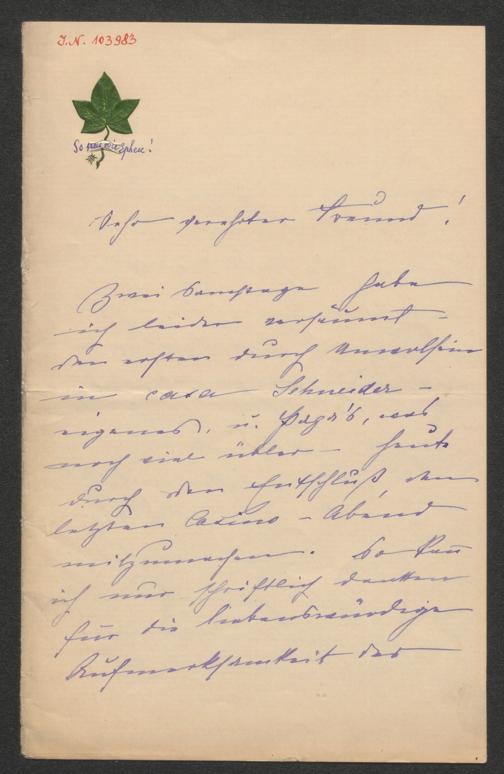 I.N. 103983
So        Epheu!
Sehr verehrter Freund!
Zwei Samstage habe
ich leider versäumt –
den ersten durch Unwohlsein
in casa Schneider –
eigenes, u. Papa's, was
noch viel übler – heute
durch den Entschluß den
letzten Casino-Abend
mitzumachen. So kann
ich nur schriftlich danken
für die liebenswürdige
Aufmerksamkeit des